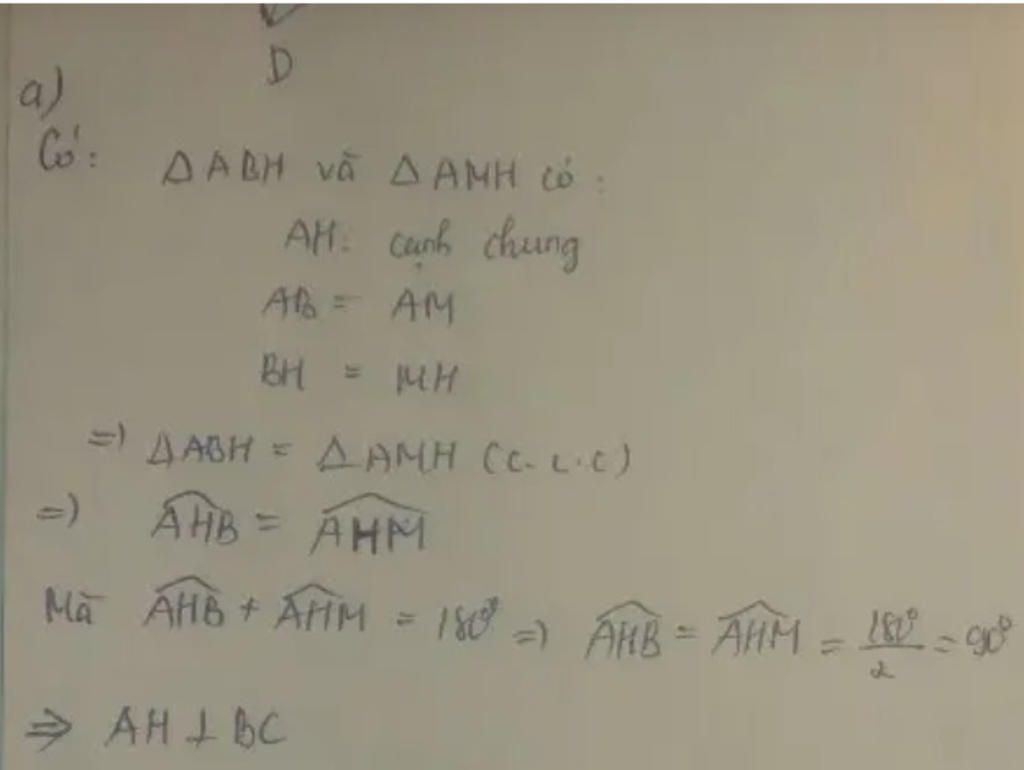 D
a)
Có: Δ ABH và Δ AMH có:
AH: cạnh chung
AB = AM
BH = MH
=) Δ ABH = Δ AMH (c.c.c)
=) \widehat{AHB} = \widehat{AHM}
Mà \widehat{AHB} + \widehat{AHM} = 180° =) \widehat{AHB} = \widehat{AHM} = \frac{180°}{2} = 90°
⇒ AH ⊥ BC